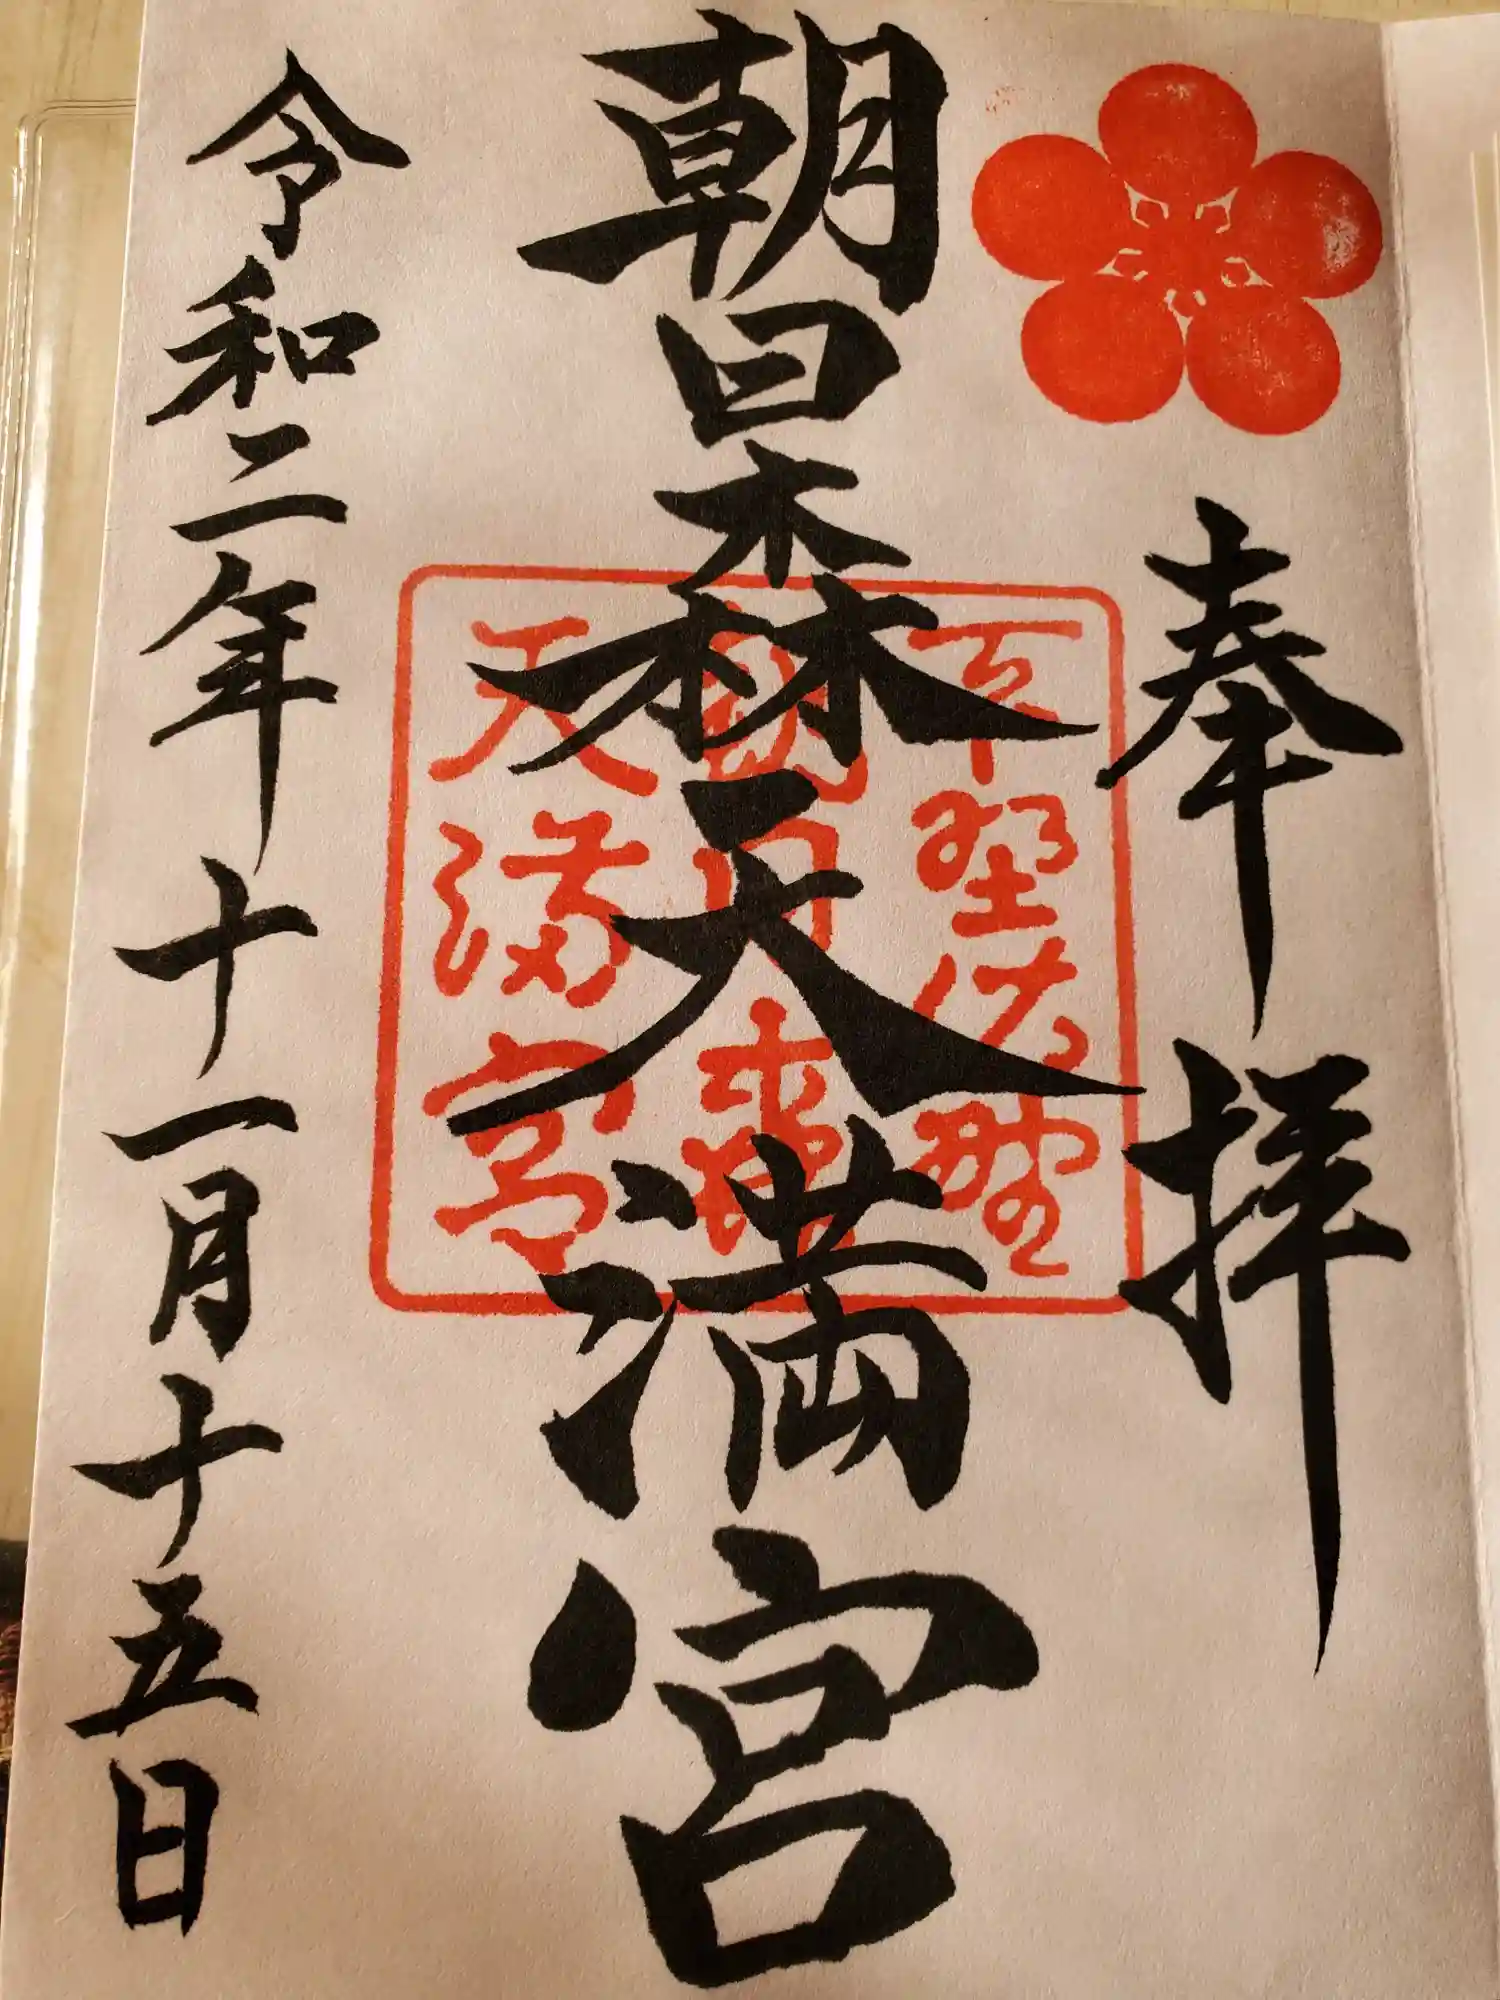 奉拝
朝日森天満宮
令和二年十一月十五日
下野佐野
朝日森
天満宮